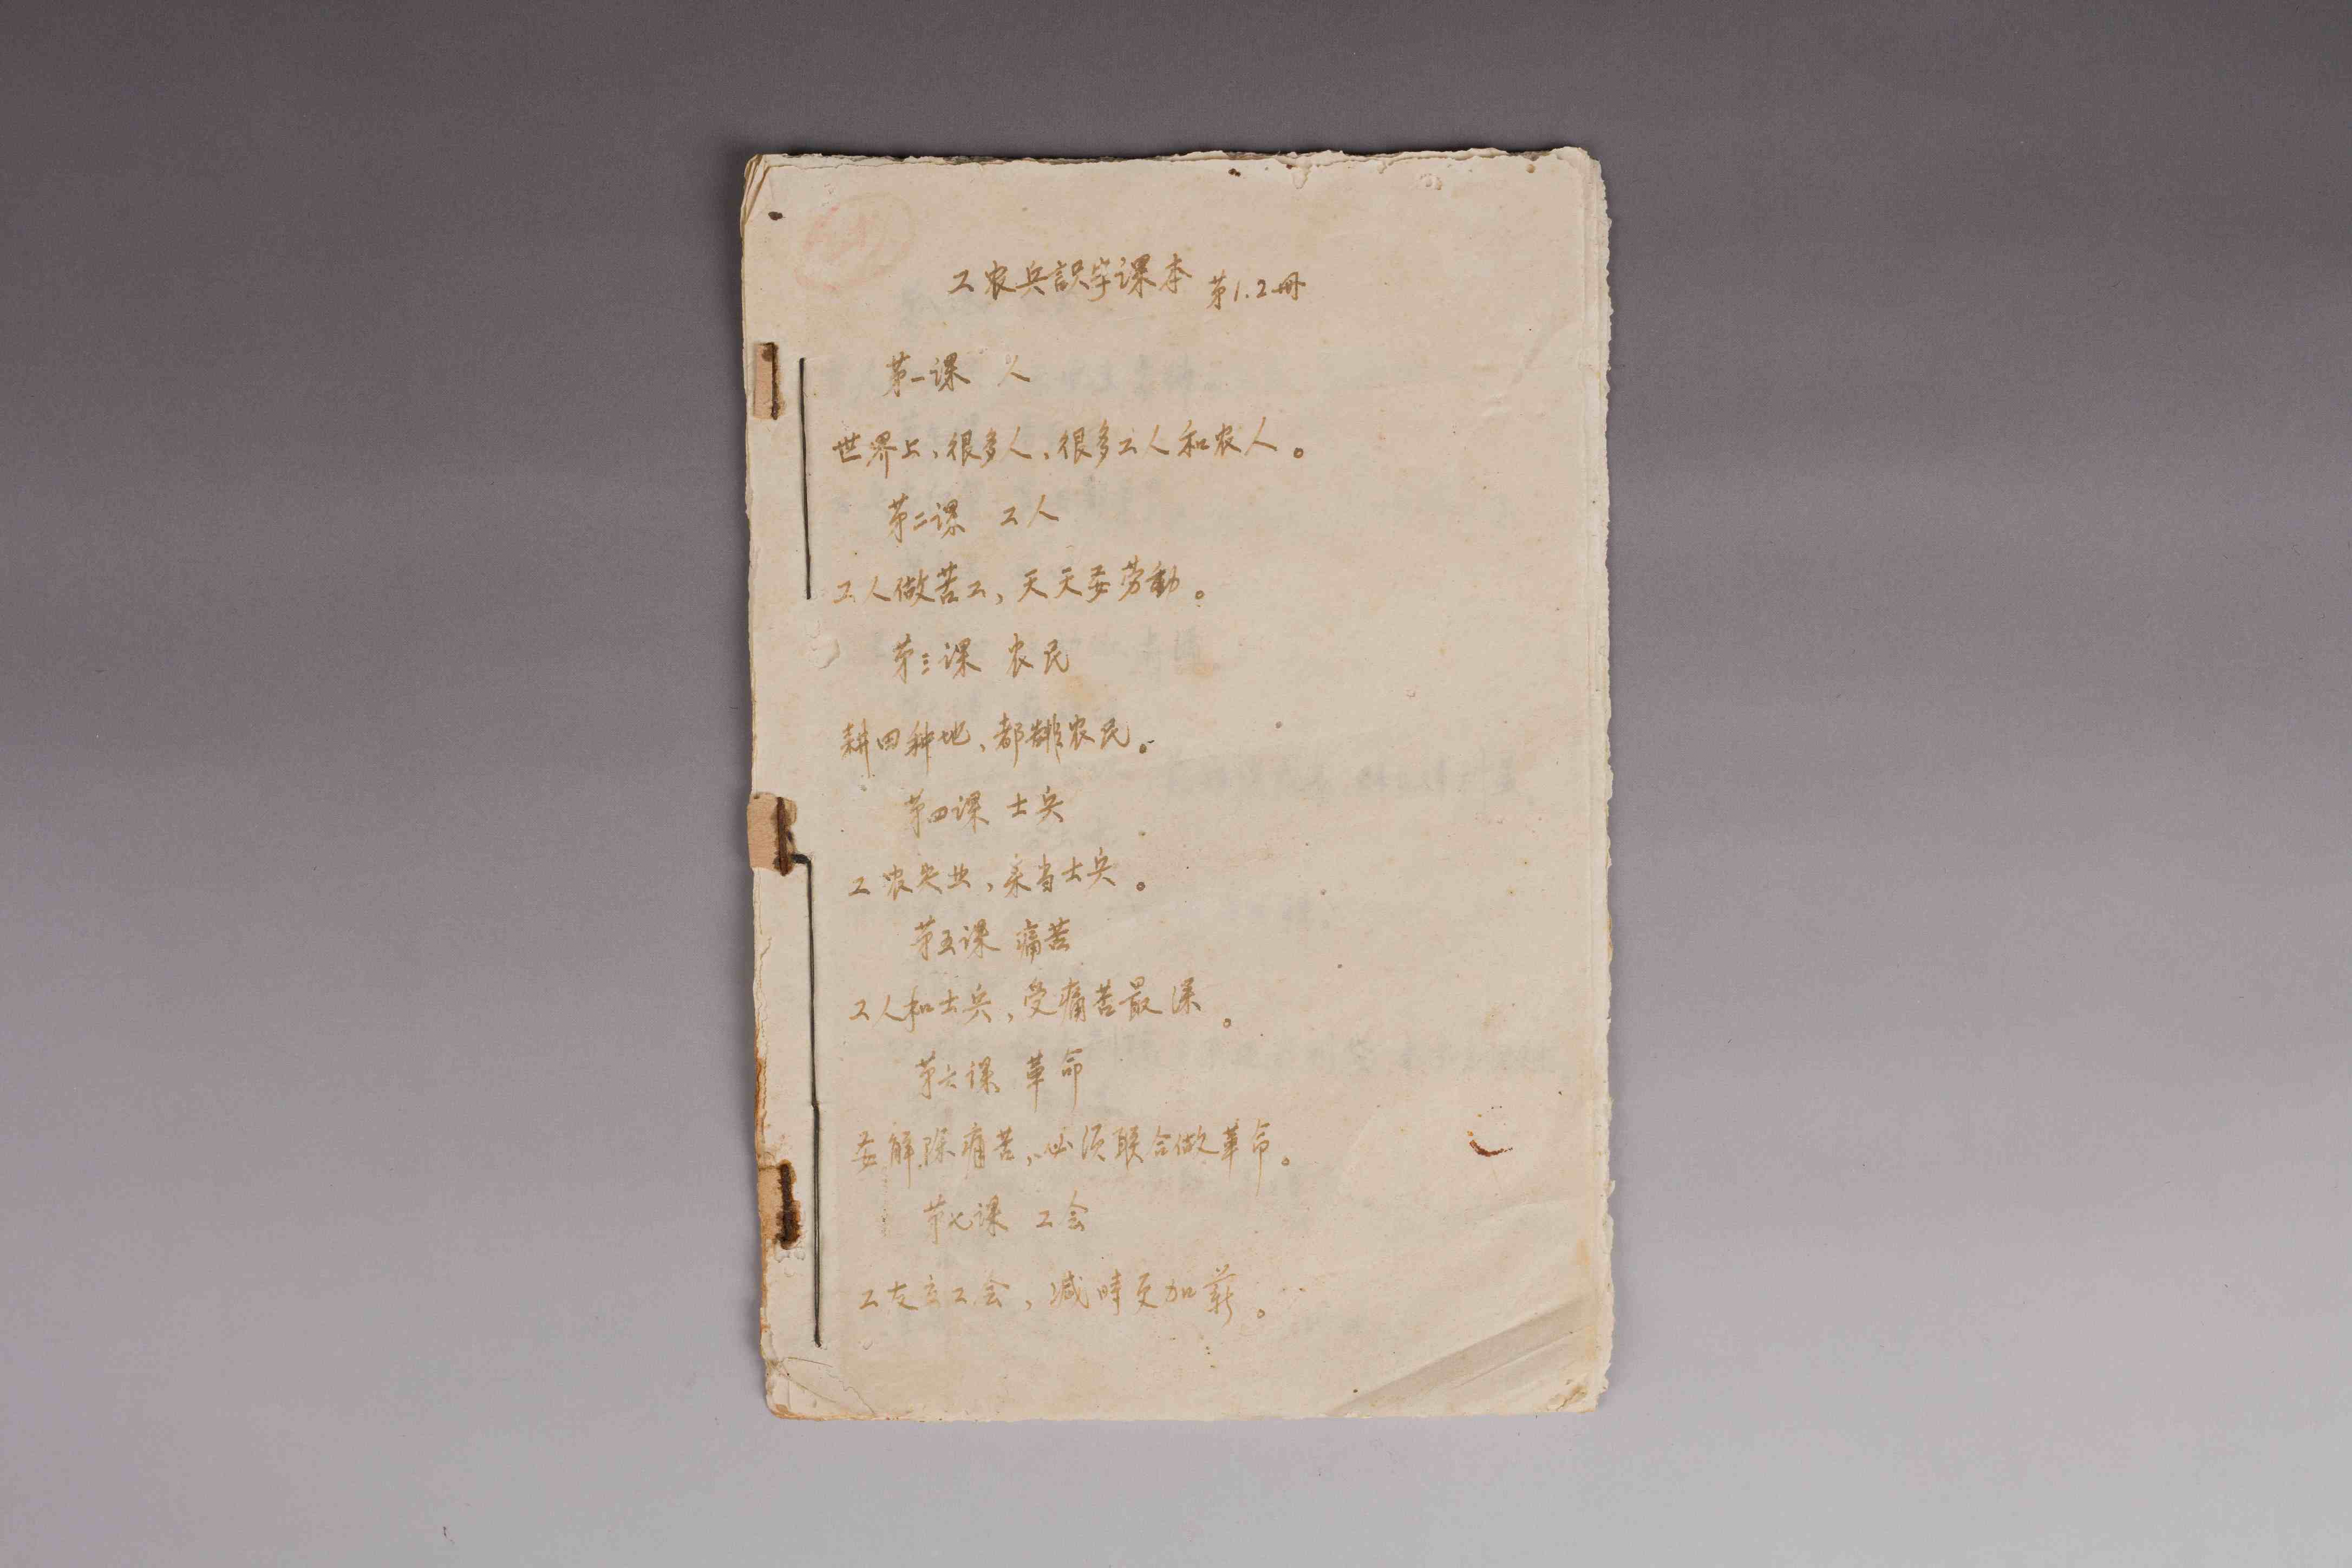 工农兵識字课本 第1.2册
第一课 人
世界上、很多人、很多工人和农人。
第二课 工人
工人做苦工，天天要劳動。
第三课 农民
耕田种地、都靠农民。
第四课 士兵
工农失业，来当士兵。
第五课 痛苦
工人和士兵，受痛苦最深。
第六课 革命
要解除痛苦，必须联合做革命。
第七课 工会
工友立工会，减時更加薪。